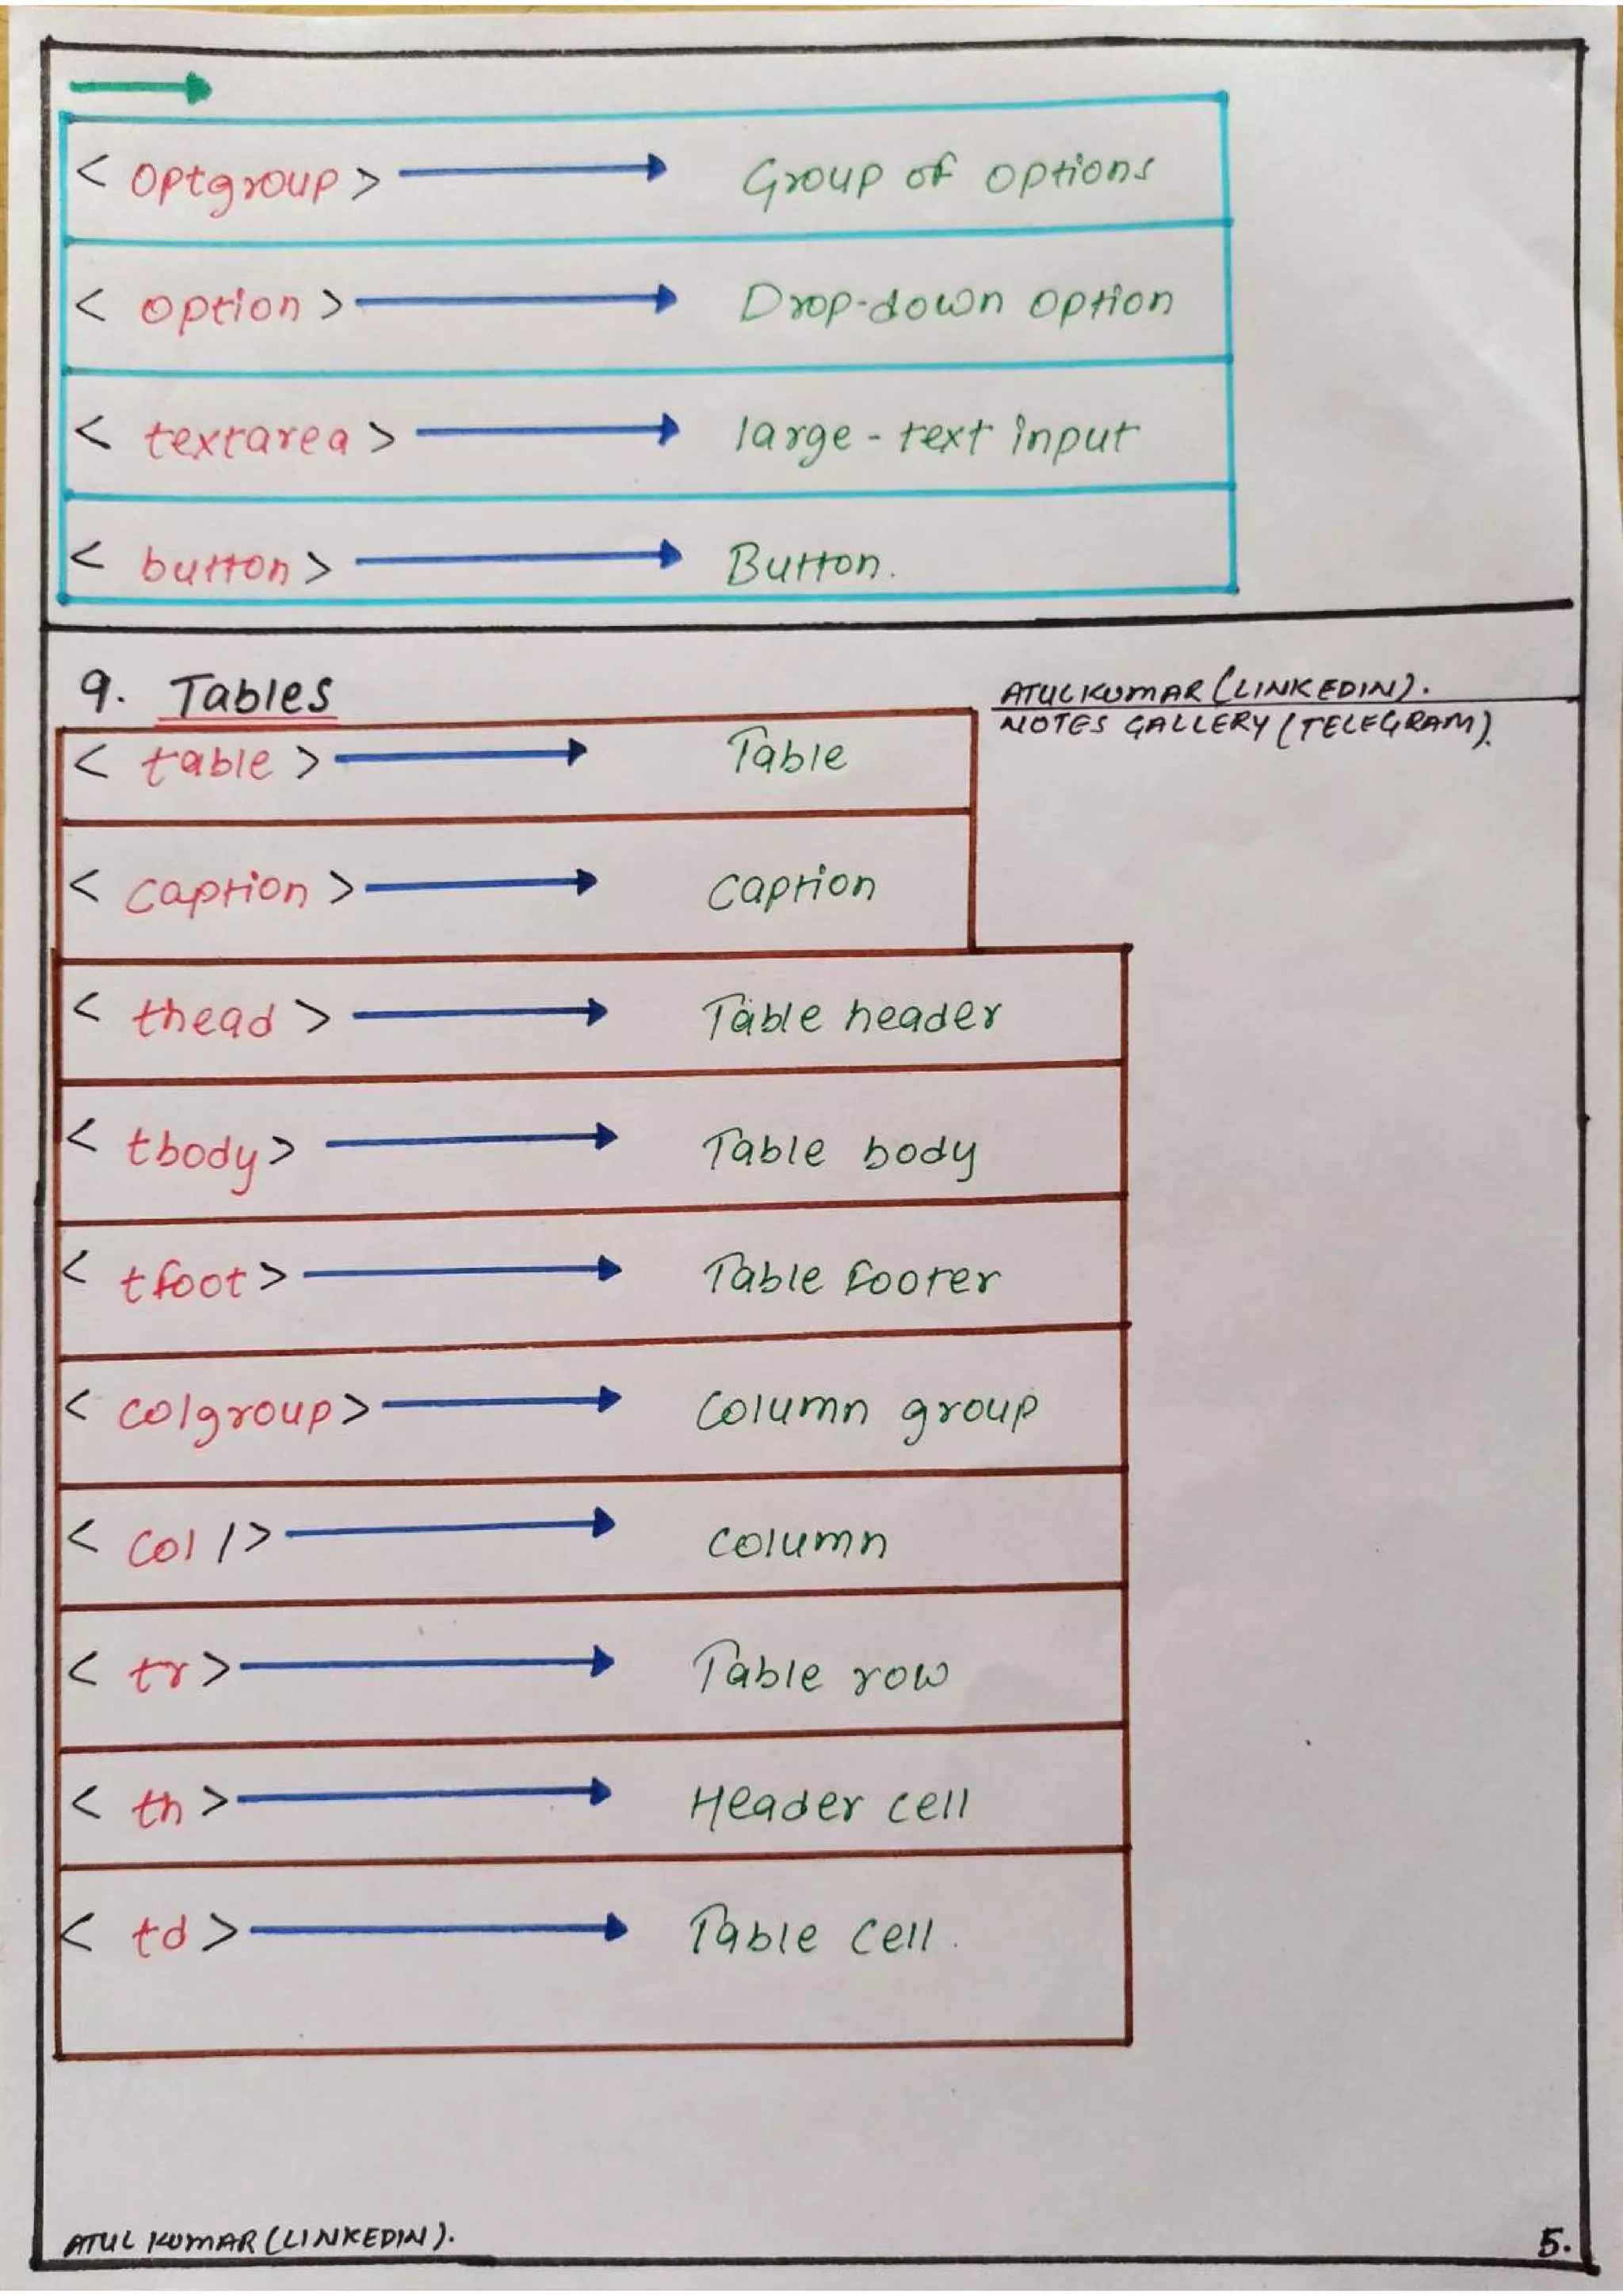 < optgroup > Group of options
< option > Drop-down option
< textarea > large-text input
< button > Button.
9. Tables
ATUL KUMAR (LINKEDIN).
NOTES GALLERY (TELEGRAM).
< table > Table
< caption > caption
< thead > Table header
< tbody > Table body
< tfoot > Table footer
< colgroup > Column group
< col /> column
< tr > Table row
< th > Header cell
< td > Table cell.
ATUL KUMAR (LINKEDIN).
5.